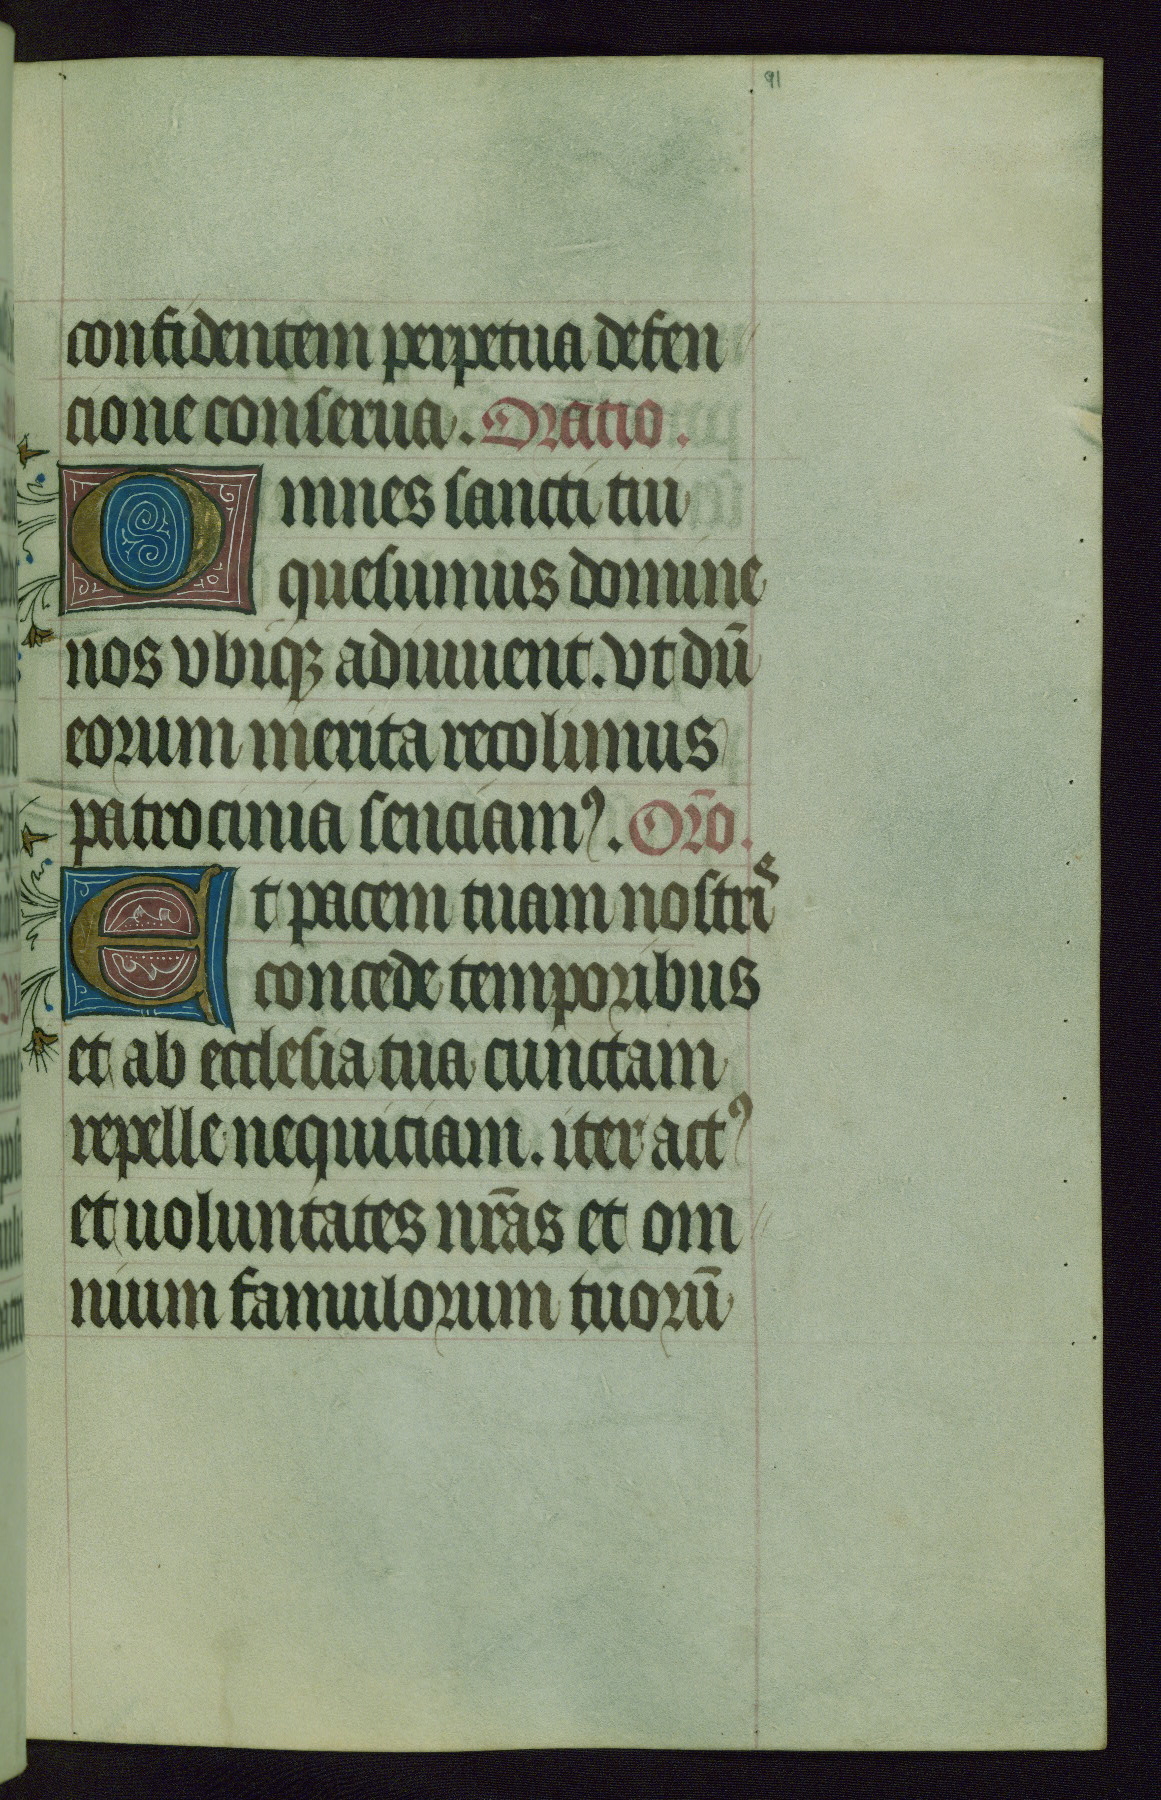 91
confidentem perpetua defen
cione conserua. Oratio.
Omnes sancti tui
quesumus domine
nos vbiqꝫ adiuuent. vt dū
eorum merita recolimus
patrocinia senciamꝰ. Oro̅.
Et pacem tuam nostris
concede temporibus
et ab ecclesia tua cunctam
repelle nequiciam. iter actꝰ
et uoluntates nr̅as et om
nium famulorum tuorū